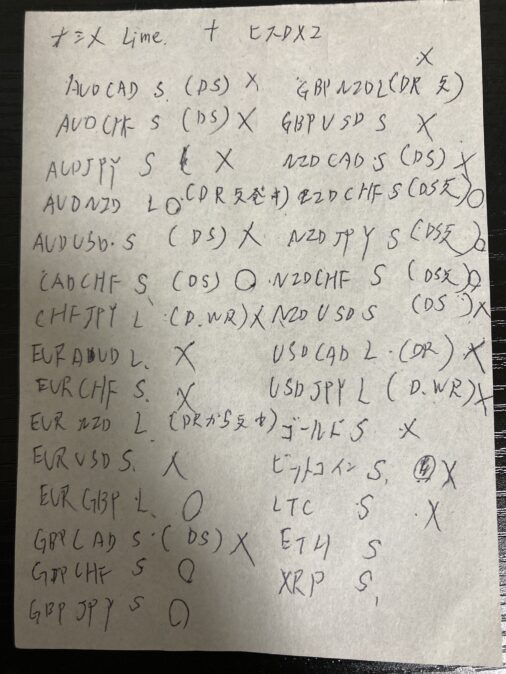 オシメ Lime. + ヒストDX2
AUDCAD S (DS) X
AUDCHF S (DS) X
AUDJPY S X
AUDNZD L O (DR
AUDUSD S (DS) X
CADCHF S (DS) O
CHFJPY L (D.WR) X
EURAUD L X
EURCHF S X
EURNZD L (DRから
EURUSD S X
EURGBP L O
GBPCAD S (DS) X
GBPCHF S O
GBPJPY S O
X
GBPNZD L (DR
GBPUSD S X
NZDCAD S (DS) X
NZDCHF S (DS O
NZDJPY S (DS O
NZDCHF S (DS O
NZDUSD S (DS) X
USDCAD L (DR) X
USDJPY L (D.WR) X
ゴールド S X
ビットコイン S X
LTC S X
ETH S
XRP S